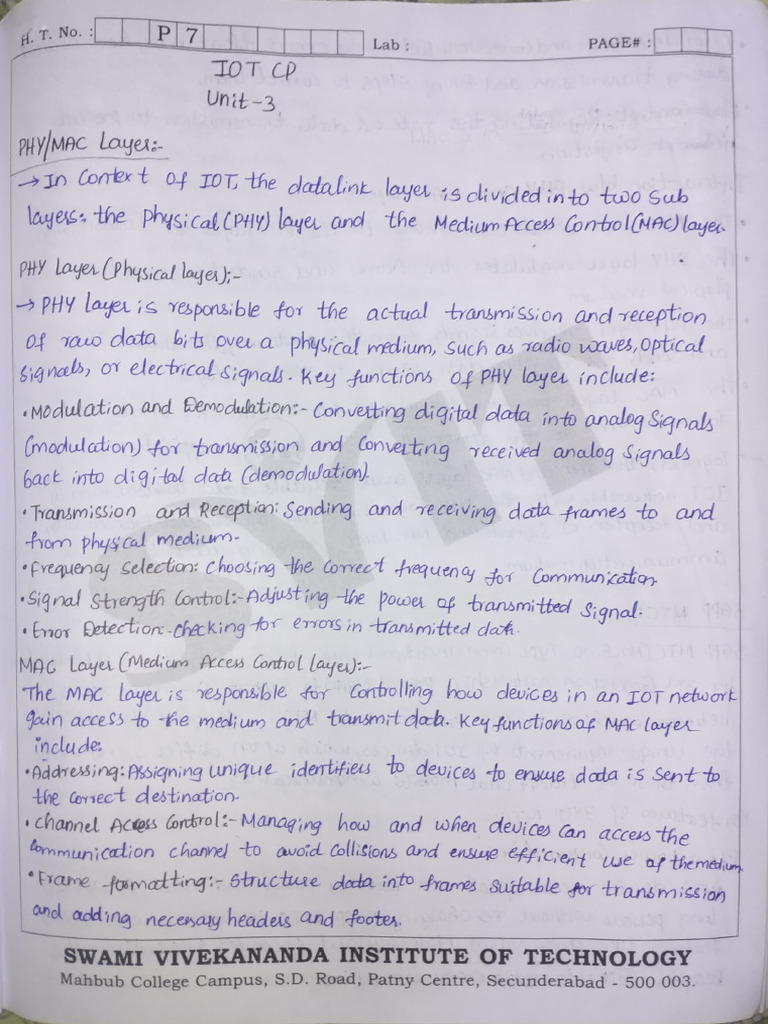 H. T. No. : P 7 Lab : PAGE# :
IOT CP
Unit-3
PHY/MAC Layer:-
→ In Context of IOT, the datalink layer is divided into two Sub
layers: the physical(PHY) layer and the Medium Access Control(MAC) layer.
PHY Layer (Physical layer);-
→ PHY layer is responsible for the actual transmission and reception
of raw data bits over a physical medium, such as radio waves, optical
signals, or electrical signals. Key functions of PHY layer include:
• Modulation and Demodulation:- Converting digital data into analog Signals
(modulation) for transmission and converting received analog Signals
back into digital data (demodulation).
• Transmission and Reception: Sending and receiving data frames to and
from physical medium-
• Frequency Selection: Choosing the correct frequency for Communication.
• Signal Strength Control:- Adjusting the power of transmitted Signal.
• Error Detection-checking for errors in transmitted data.
MAC Layer (Medium Access Control layer):-
The MAC layer is responsible for controlling how devices in an IOT network
gain access to the medium and transmit data. Key functions of MAC layer
include:
• Addressing: Assigning unique identifiers to devices to ensure data is sent to
the correct destination.
• Channel Access Control:- Managing how and when devices can access the
communication channel to avoid collisions and ensure efficient use of the medium.
• Frame formatting:- Structure data into frames suitable for transmission
and adding necessary headers and footer.
SVIT
SWAMI VIVEKANANDA INSTITUTE OF TECHNOLOGY
Mahbub College Campus, S.D. Road, Patny Centre, Secunderabad - 500 003.